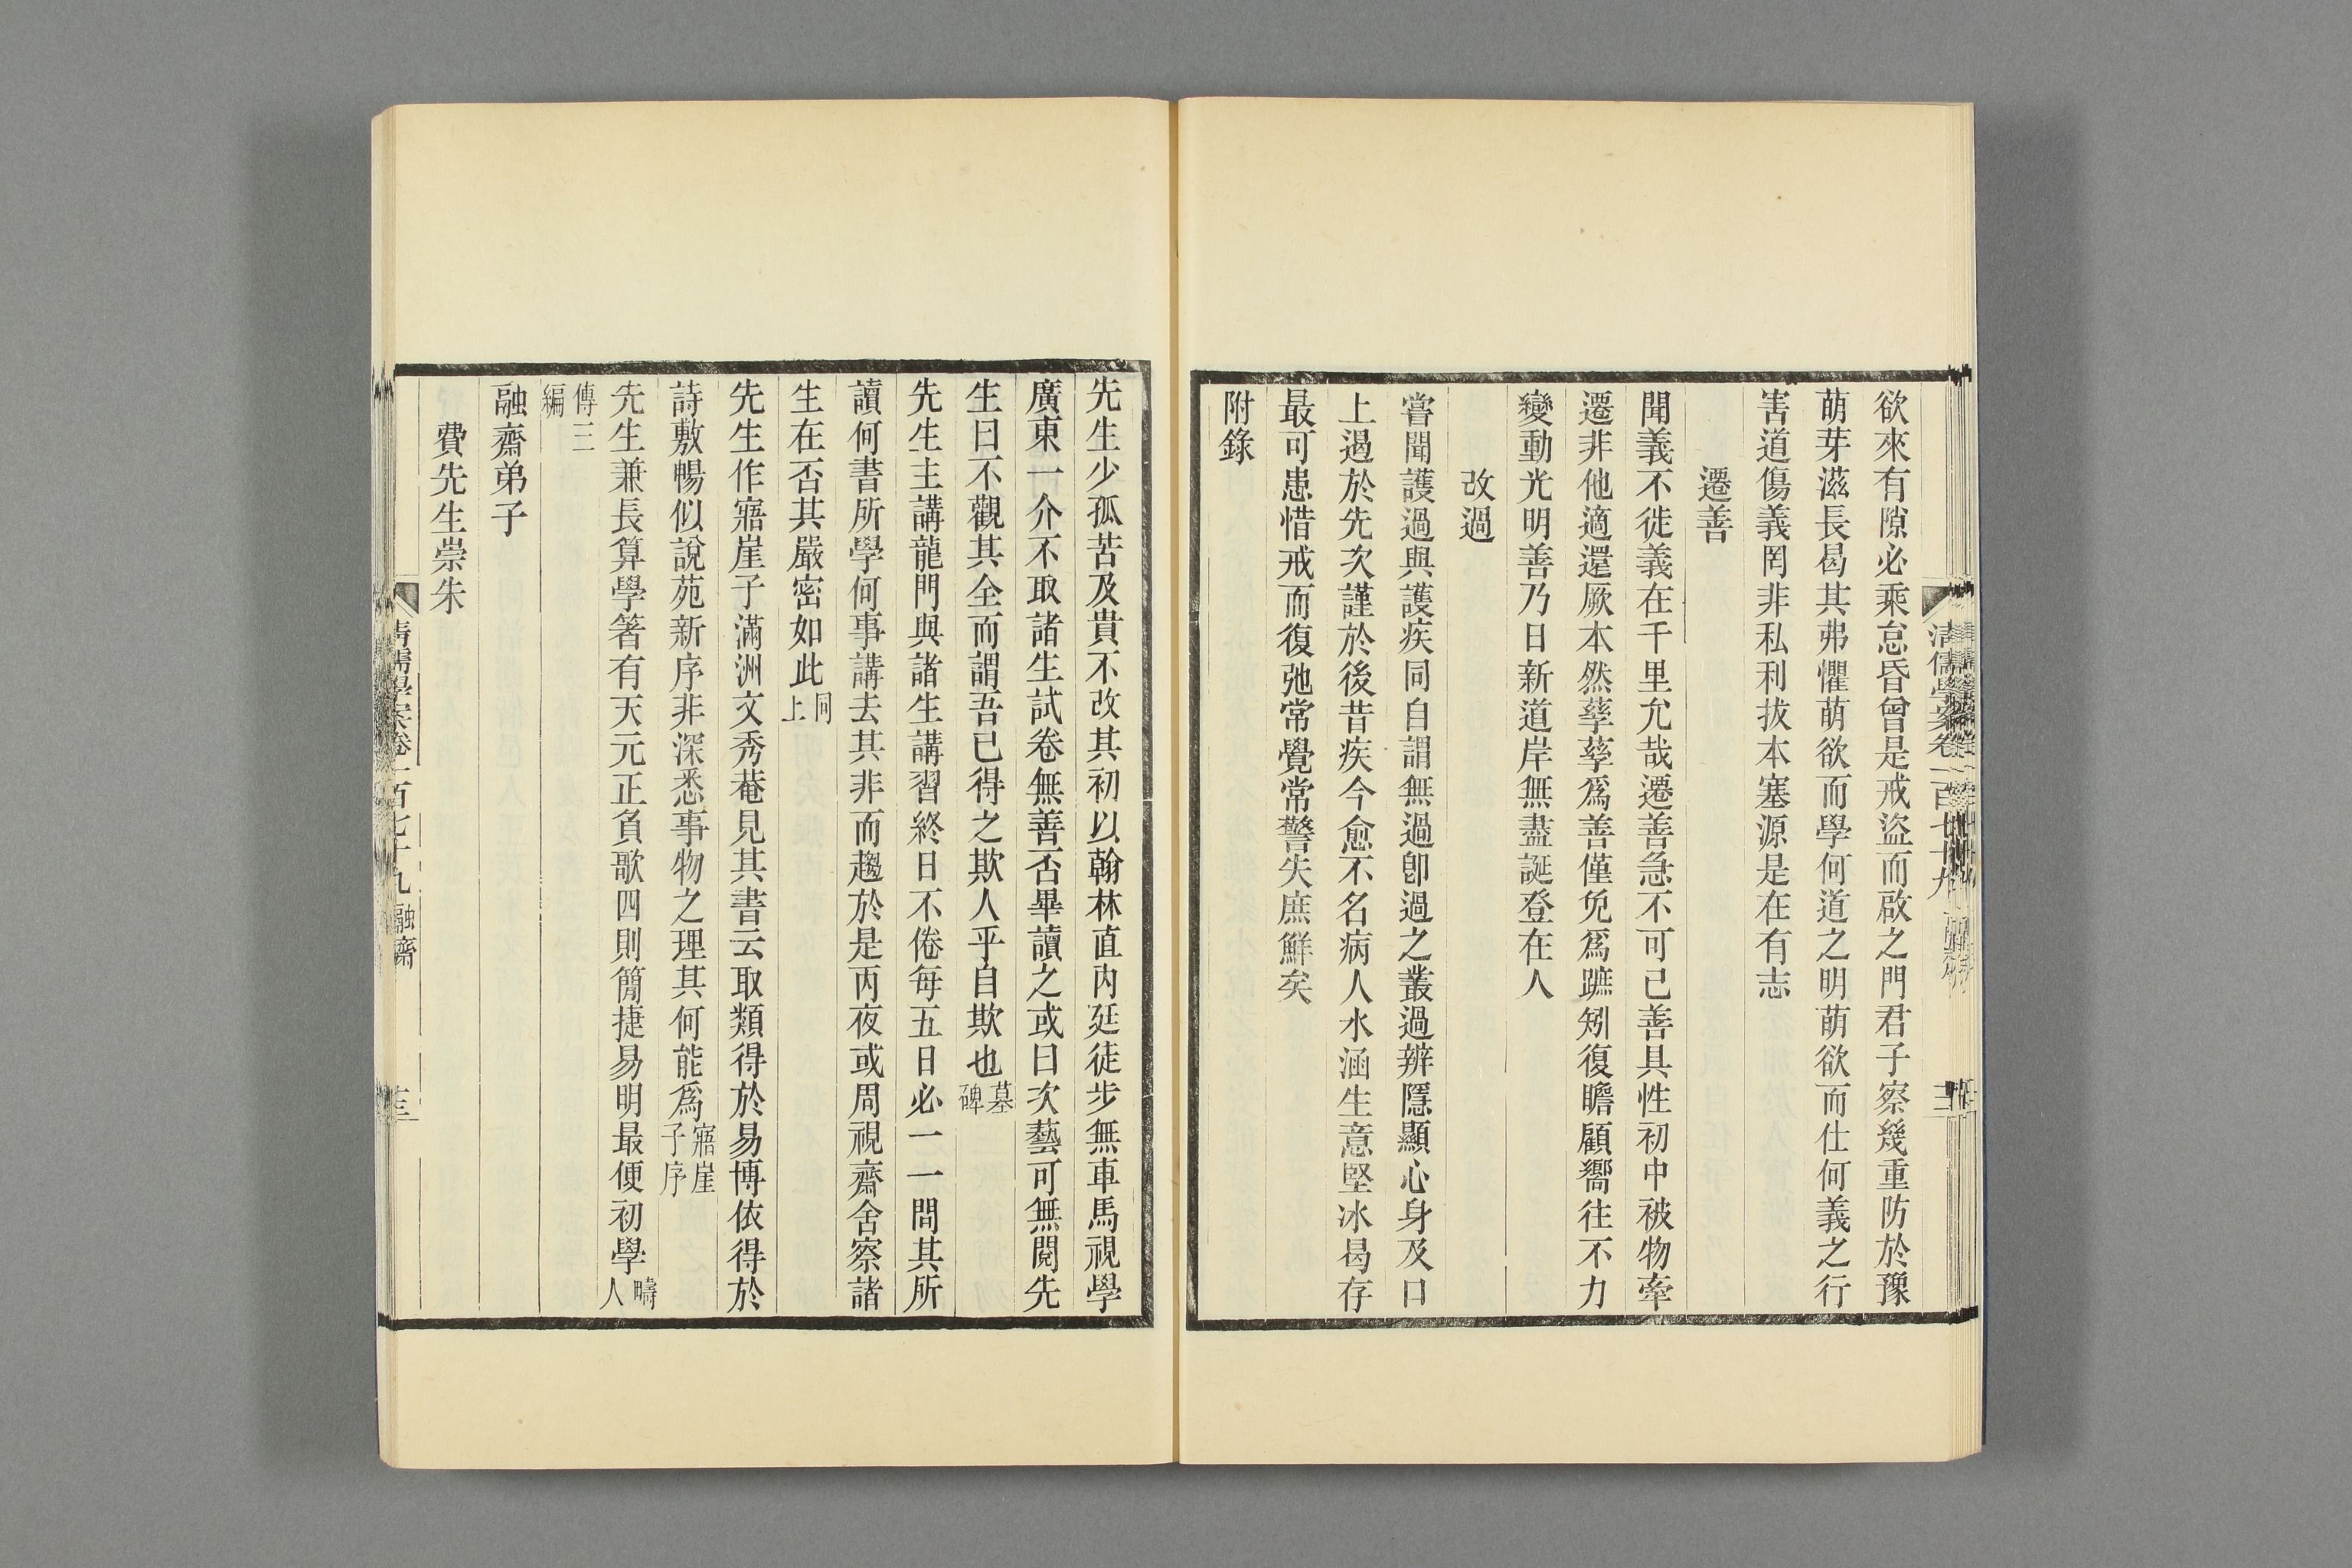 清儒學案卷一百七十九
欲來有隙必乘怠昏曾是戒盜而啟之門君子察幾重防於豫
萌芽滋長曷其弗懼萌欲而學何道之明萌欲而仕何義之行
害道傷義罔非私利拔本塞源是在有志
遷善
聞義不徙義在千里允哉遷善急不可已善具性初中被物牽
遷非他適還厥本然孳孳爲善僅免爲蹠矧復瞻顧嚮往不力
變動光明善乃日新道岸無盡誕登在人
改過
嘗聞護過與護疾同自謂無過卽過之叢過辨隱顯心身及口
上過於先次謹於後昔疾今愈不名病人水涵生意堅冰曷存
最可患惜戒而復弛常覺常警失庶鮮矣
附錄
先生少孤苦及貴不改其初以翰林直內廷徒步無車馬視學
廣東一介不取諸生試卷無善否畢讀之或曰次藝可無閱先
生曰不觀其全而謂吾已得之欺人乎自欺也墓碑
先生主講龍門與諸生講習終日不倦每五日必一一問其所
讀何書所學何事講去其非而趨於是丙夜或周視齋舍察諸
生在否其嚴密如此同上
先生作寤崖子滿洲文秀菴見其書云取類得於易博依得於
詩敷暢似說苑新序非深悉事物之理其何能爲寤崖子序
先生兼長算學箸有天元正負歌四則簡捷易明最便初學疇人
傳三編
融齋弟子
費先生崇朱
清儒學案卷一百七十九 融齋